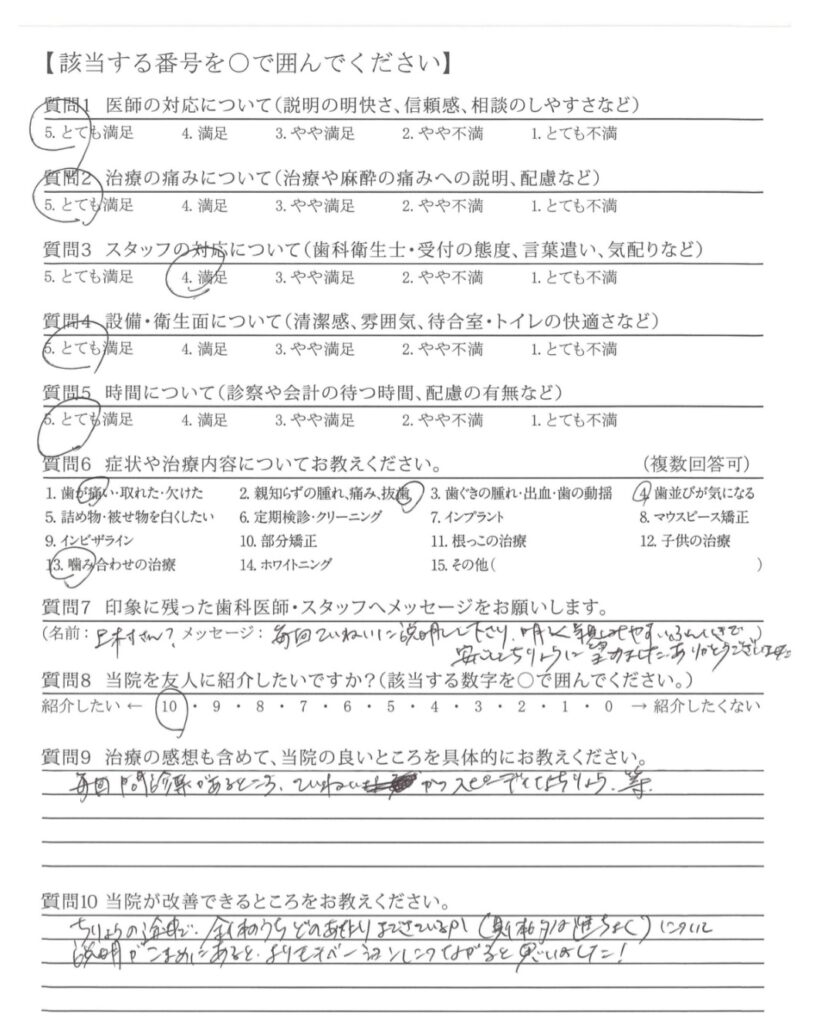 【該当する番号を○で囲んでください】
質問1 医師の対応について(説明の明快さ、信頼感、相談のしやすさなど)
5. とても満足 4. 満足 3. やや満足 2. やや不満 1. とても不満
質問2 治療の痛みについて(治療や麻酔の痛みへの説明、配慮など)
5. とても満足 4. 満足 3. やや満足 2. やや不満 1. とても不満
質問3 スタッフの対応について(歯科衛生士・受付の態度、言葉遣い、気配りなど)
5. とても満足 4. 満足 3. やや満足 2. やや不満 1. とても不満
質問4 設備・衛生面について(清潔感、雰囲気、待合室・トイレの快適さなど)
5. とても満足 4. 満足 3. やや満足 2. やや不満 1. とても不満
質問5 時間について(診察や会計の待つ時間、配慮の有無など)
5. とても満足 4. 満足 3. やや満足 2. やや不満 1. とても不満
質問6 症状や治療内容についてお教えください。 (複数回答可)
1. 歯が痛い・取れた・欠けた 2. 親知らずの腫れ、痛み、抜歯 3. 歯ぐきの腫れ・出血・歯の動揺 4. 歯並びが気になる
5. 詰め物・被せ物を白くしたい 6. 定期検診・クリーニング 7. インプラント 8. マウスピース矯正
9. インビザライン 10. 部分矯正 11. 根っこの治療 12. 子供の治療
13. 噛み合わせの治療 14. ホワイトニング 15. その他( )
質問7 印象に残った歯科医師・スタッフへメッセージをお願いします。
(名前: さん? メッセージ: 毎回ていねいに説明して下さり、明るく親しみやすいふんいきで )
安心してちりょうに望めました。ありがとうございました
質問8 当院を友人に紹介したいですか?(該当する数字を○で囲んでください。)
紹介したい ← 10 ・ 9 ・ 8 ・ 7 ・ 6 ・ 5 ・ 4 ・ 3 ・ 2 ・ 1 ・ 0 → 紹介したくない
質問9 治療の感想も含めて、当院の良いところを具体的にお教えください。
毎回問診票があるところ、ていねい かつスピーディなちりょう、等
質問10 当院が改善できるところをお教えください。
ちりょうの途中で、全体のうちどのあたりまできているか (具体的な進ちょく) について
説明がこまめにあると、よりモチベーションにつながると思いました!